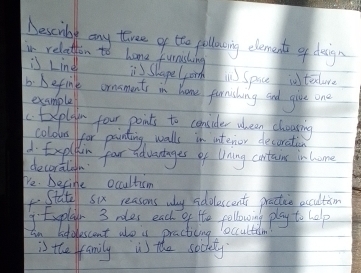 Describe any three of the following elements of design
in relation to home furnishing
i) Line ii) Shape/form iii) Space iv) texture
b. Define ornaments in home furnishing and give one
example
c. Explain four points to consider when choosing
colour for painting walls in interior decoration
d. Explain four advantages of lining curtains in home
decoration
e. Define occultism
f. State six reasons why adolescents practice occultism
g Explain 3 roles each of the following play to help
an adolescent who is practicing occultism
i) the family ii) the society